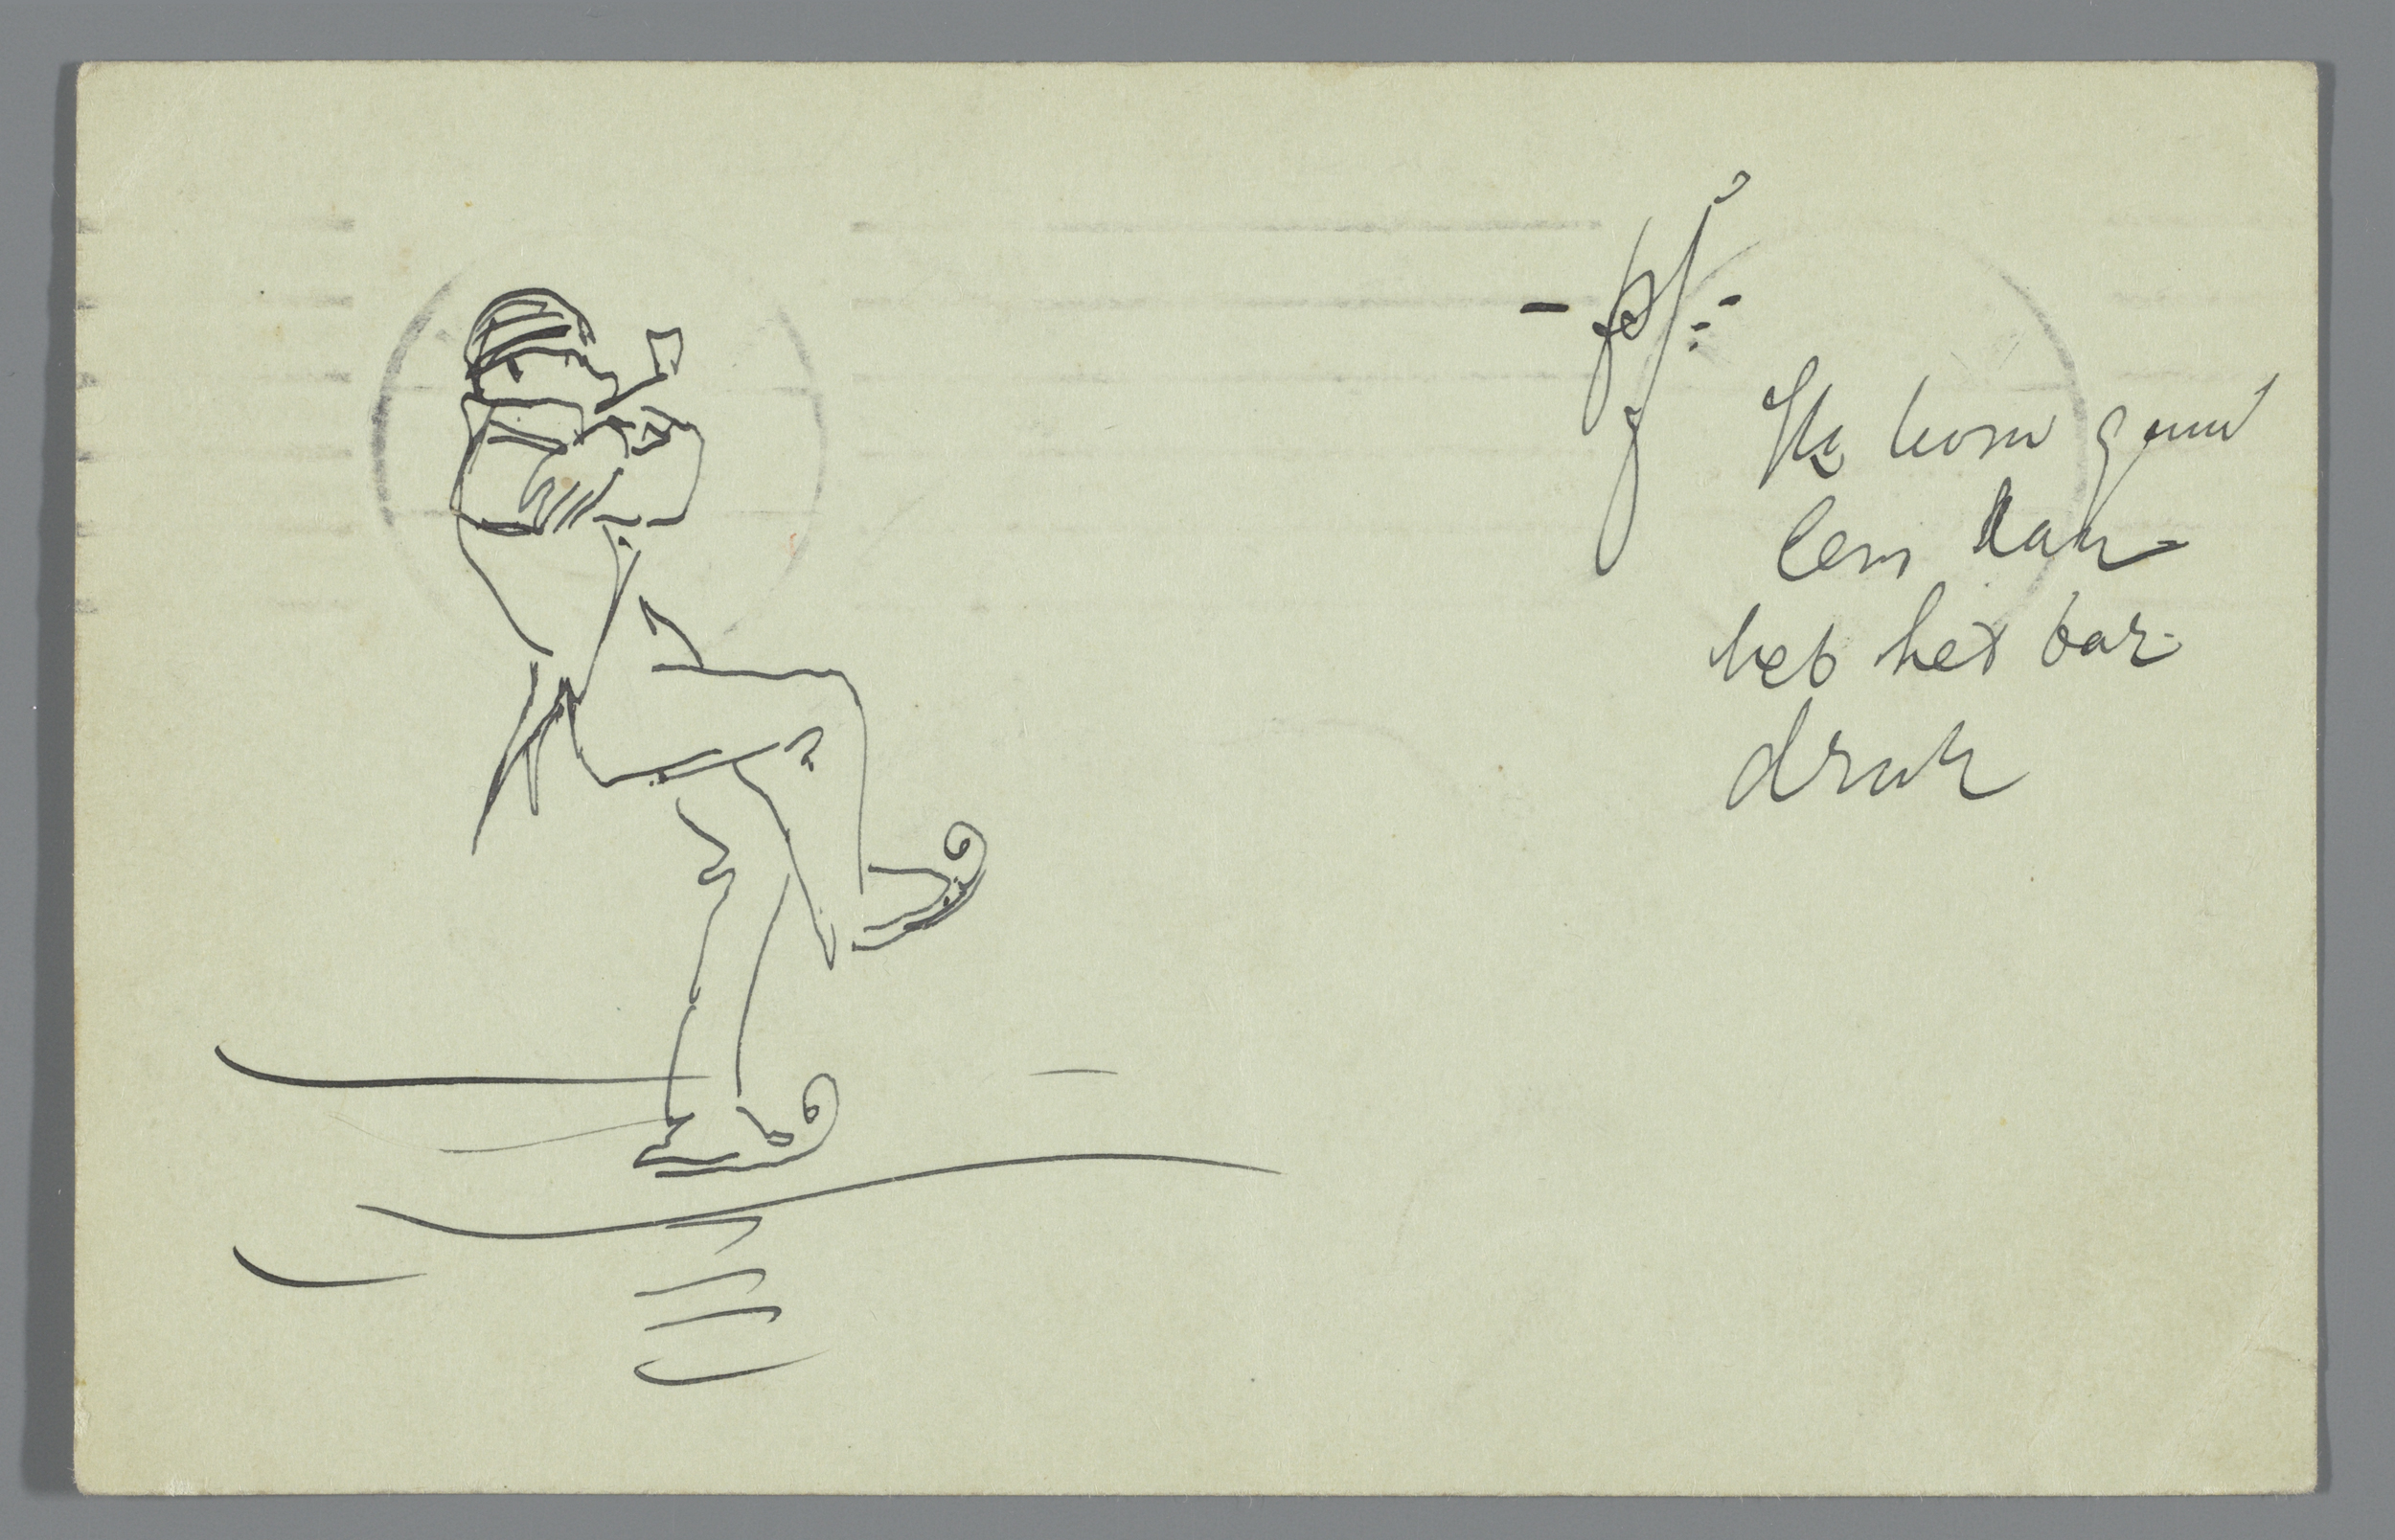 - pf: -
Ik kom gauw
heb het bar
druk